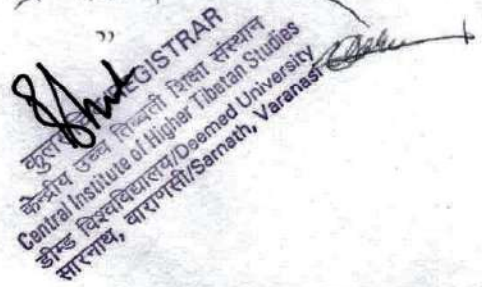 ”
कुलसचिव/REGISTRAR
केन्द्रीय उच्च तिब्बती शिक्षा संस्थान
Central Institute of Higher Tibetan Studies
डीम्ड विश्वविद्यालय/Deemed University
सारनाथ, वाराणसी/Sarnath, Varanasi